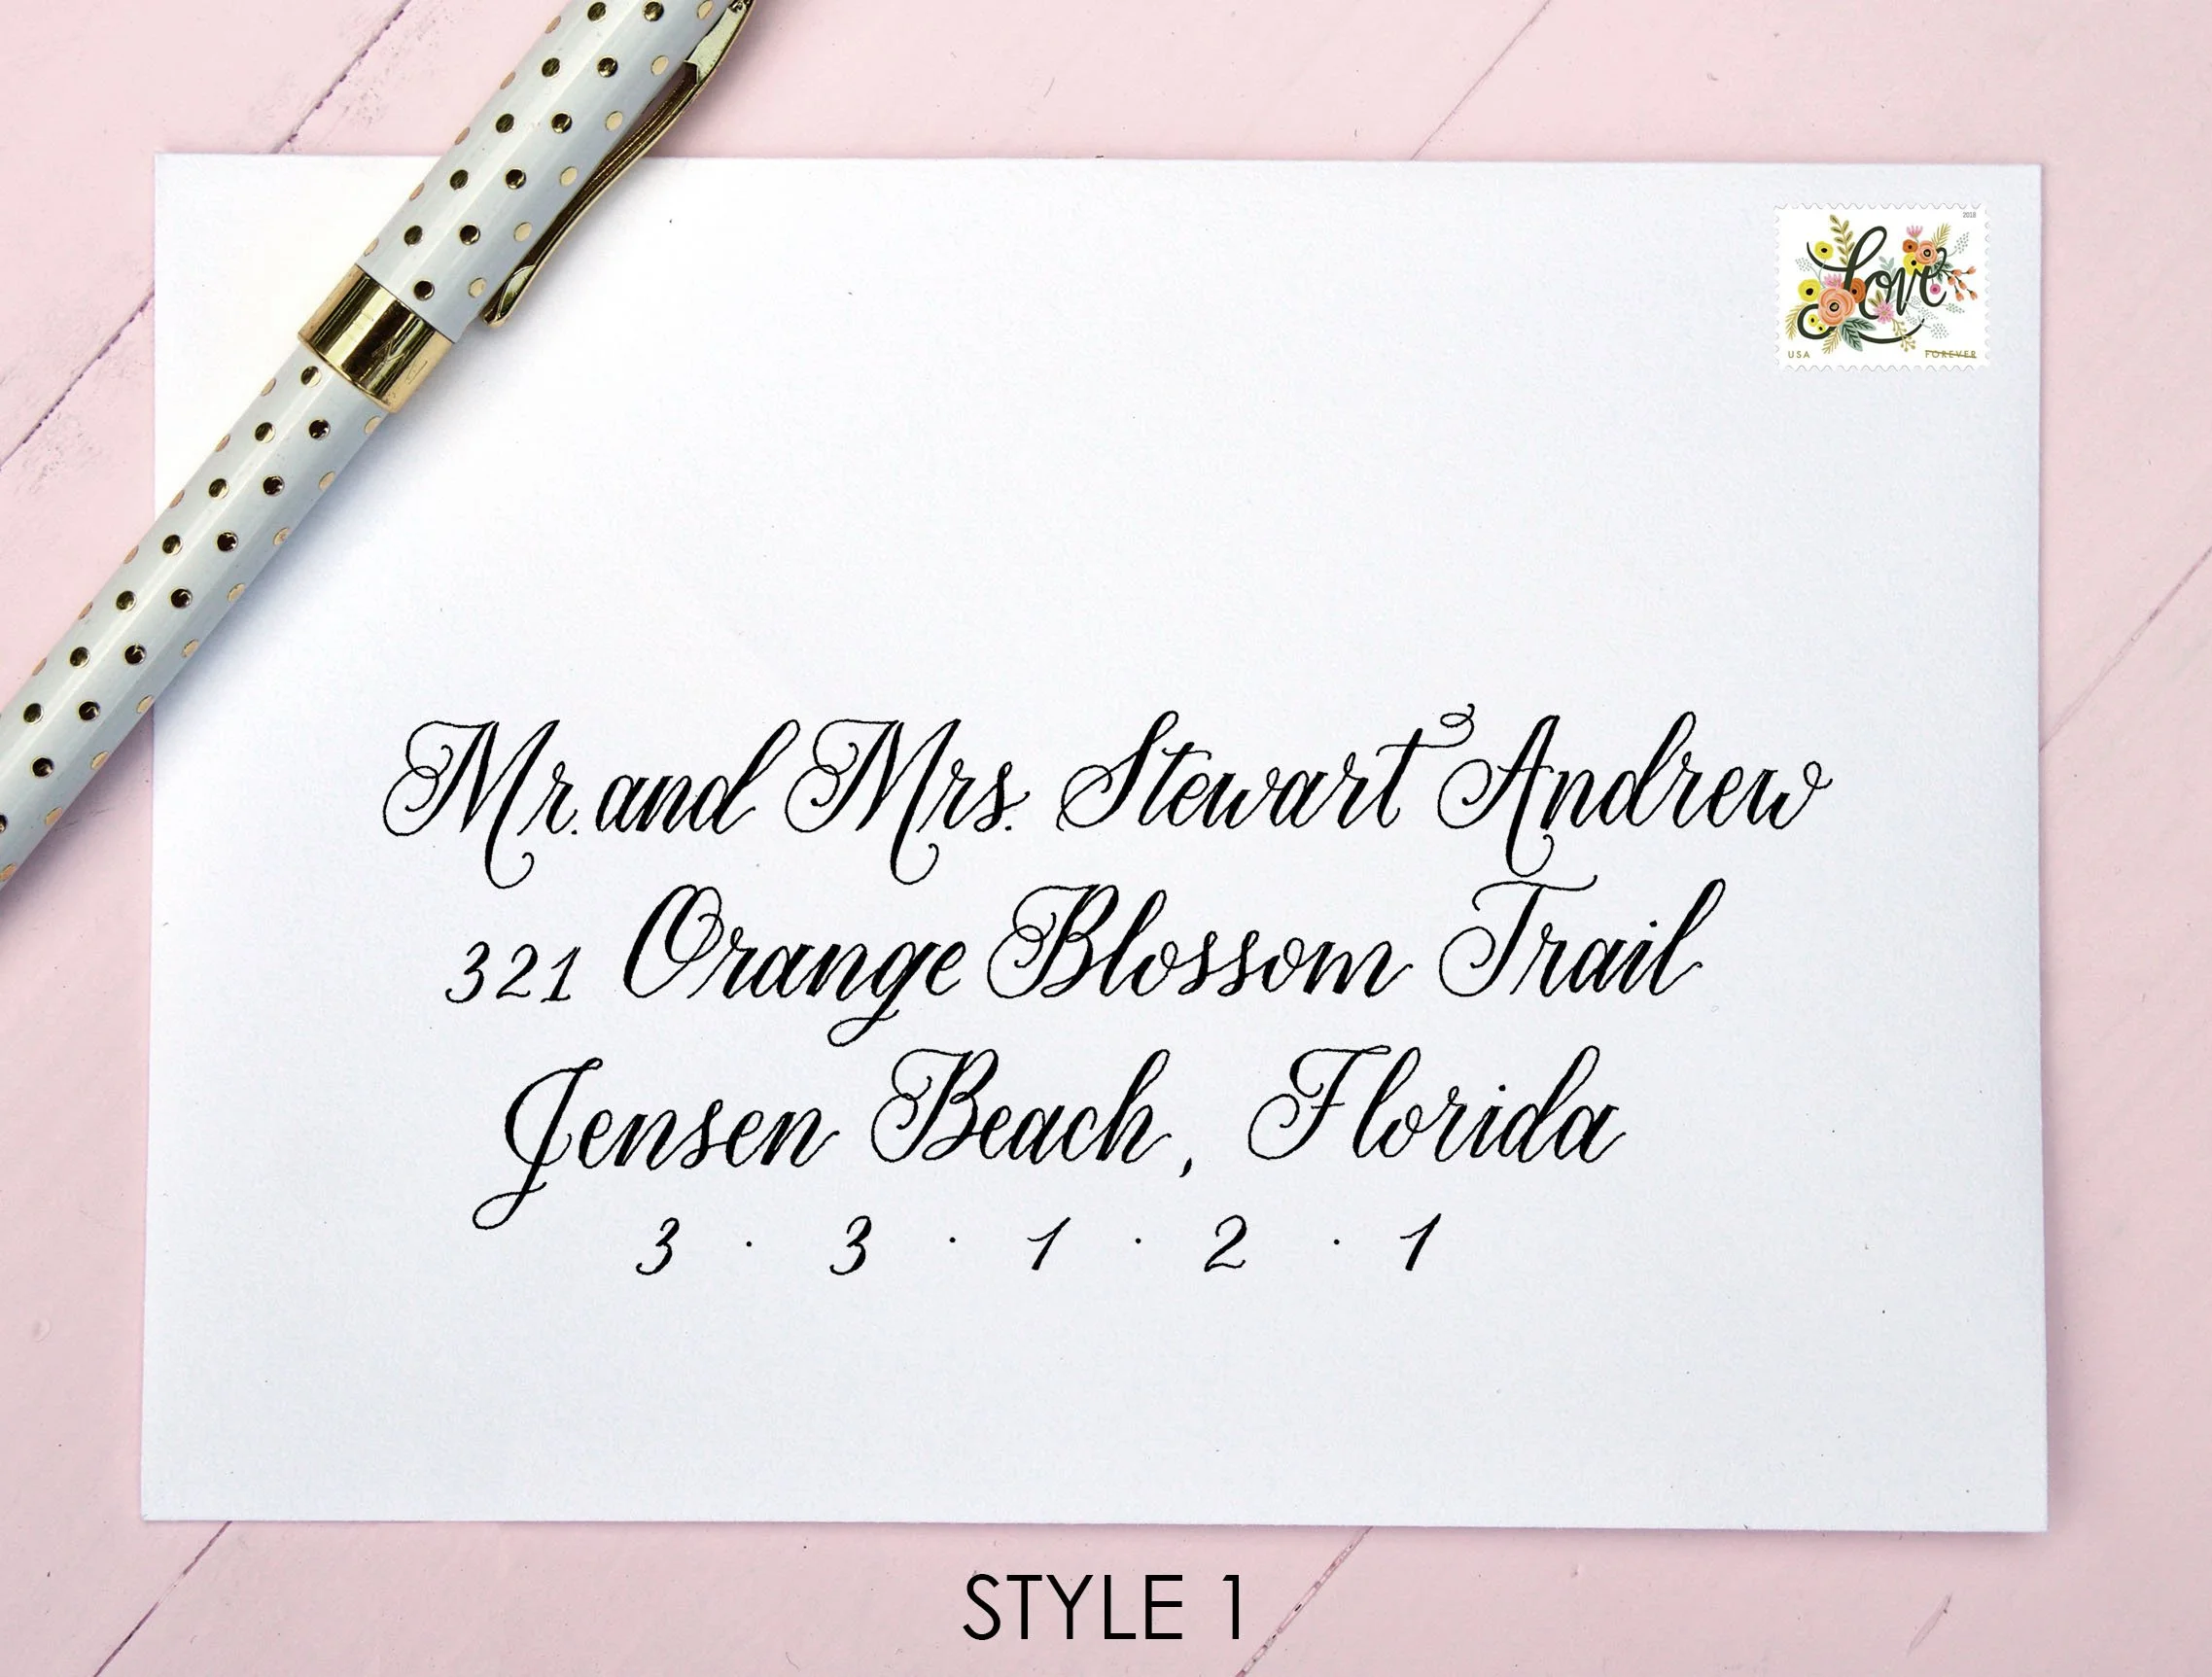 2018
Love
USA FOREVER
Mr. and Mrs. Stewart Andrew
321 Orange Blossom Trail
Jensen Beach, Florida
3 · 3 · 1 · 2 · 1
STYLE 1